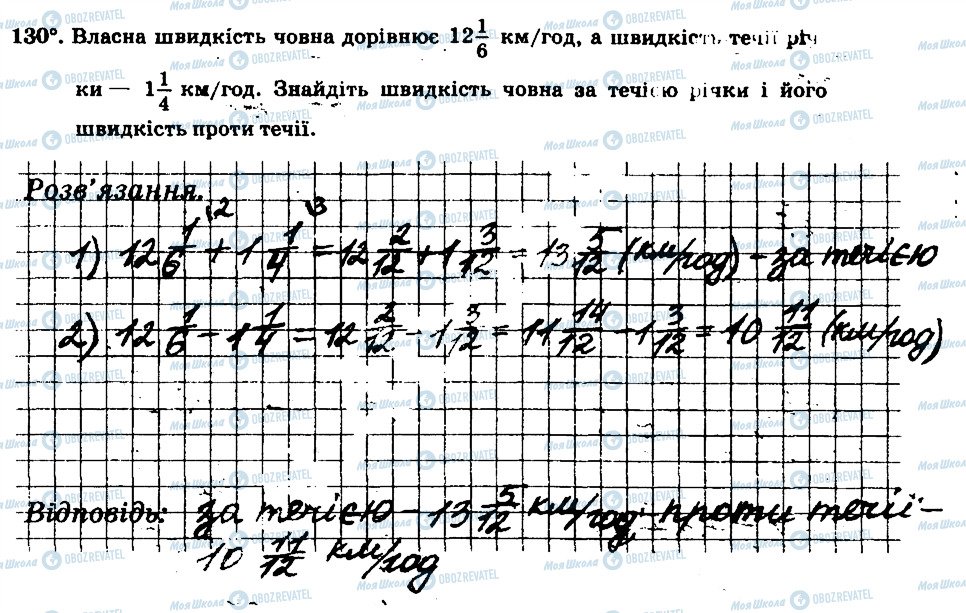 130°. Власна швидкість човна дорівнює 12 1/6 км/год, а швидкість течії річ
ки — 1 1/4 км/год. Знайдіть швидкість човна за течією річки і його
швидкість проти течії.
Розв’язання.
1) 12 1/6 \2 + 1 1/4 \3 = 12 2/12 + 1 3/12 = 13 5/12 (км/год) – за течією
2) 12 1/6 – 1 1/4 = 12 2/12 – 1 3/12 = 11 14/12 – 1 3/12 = 10 11/12 (км/год)
Відповідь: за течією – 13 5/12 км/год; проти течії –
10 11/12 км/год